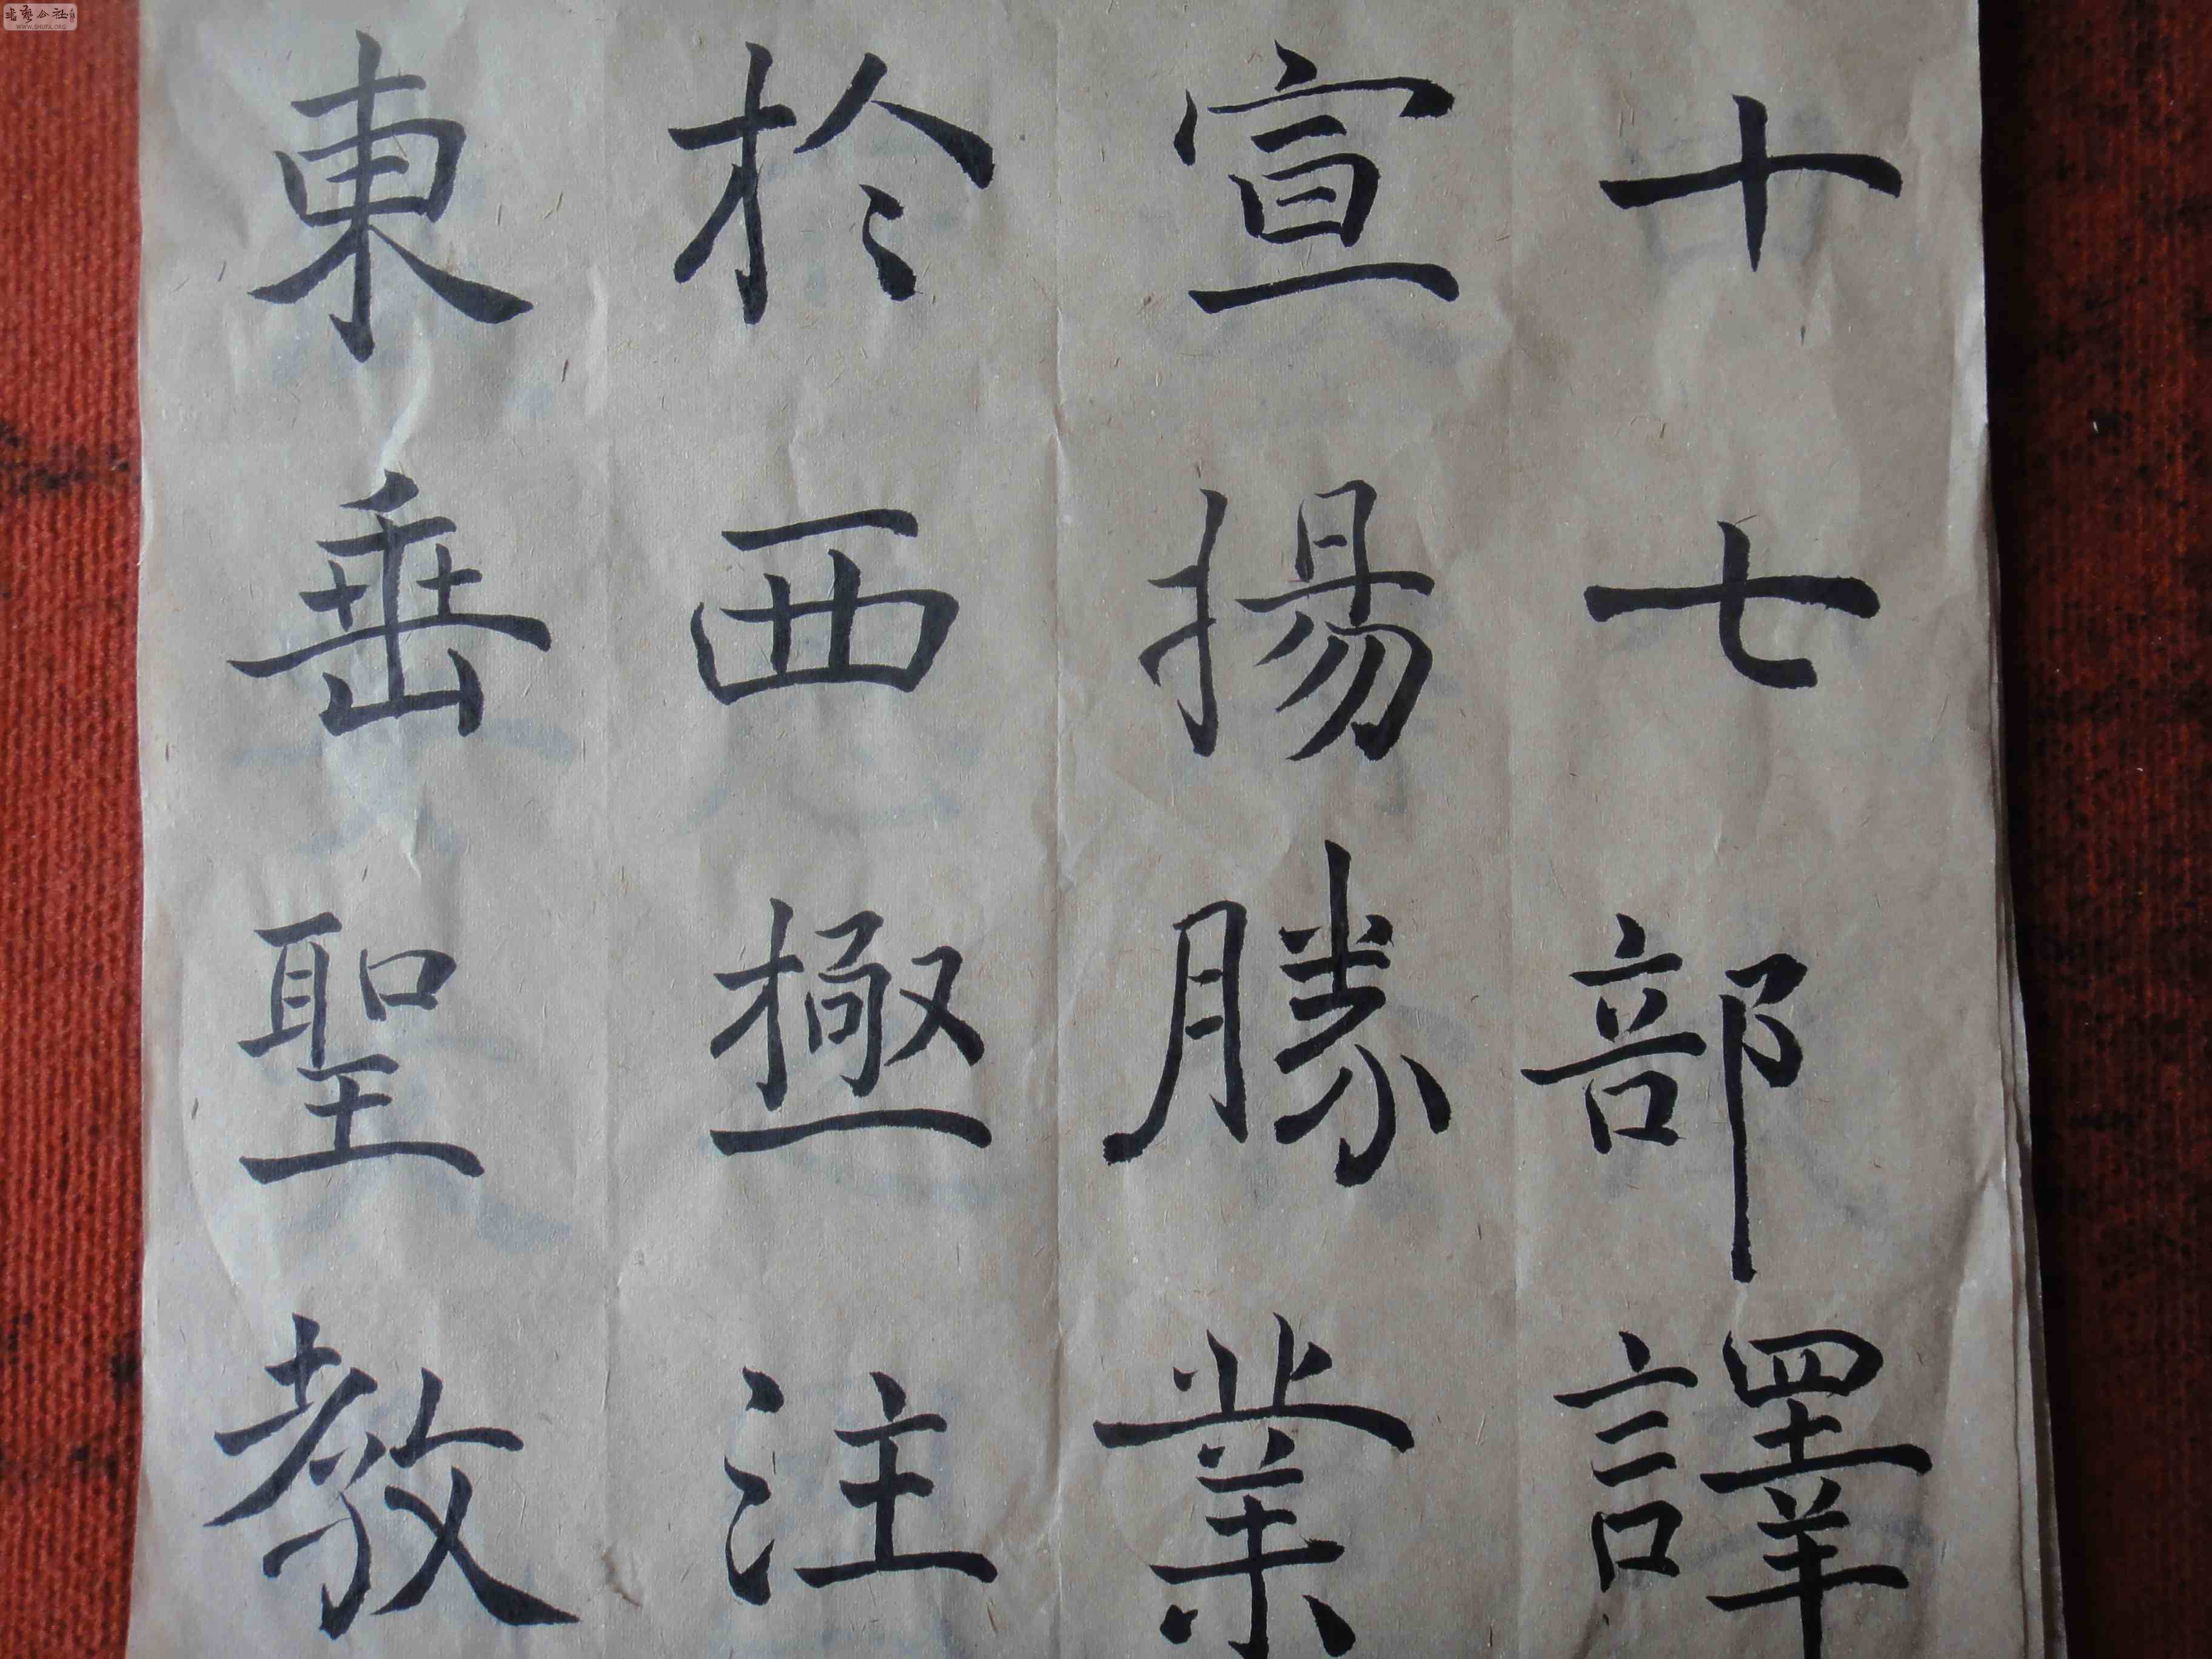 十七部譯
宣揚勝業
於西極注
東垂聖教
WWW.SHUFA.ORG